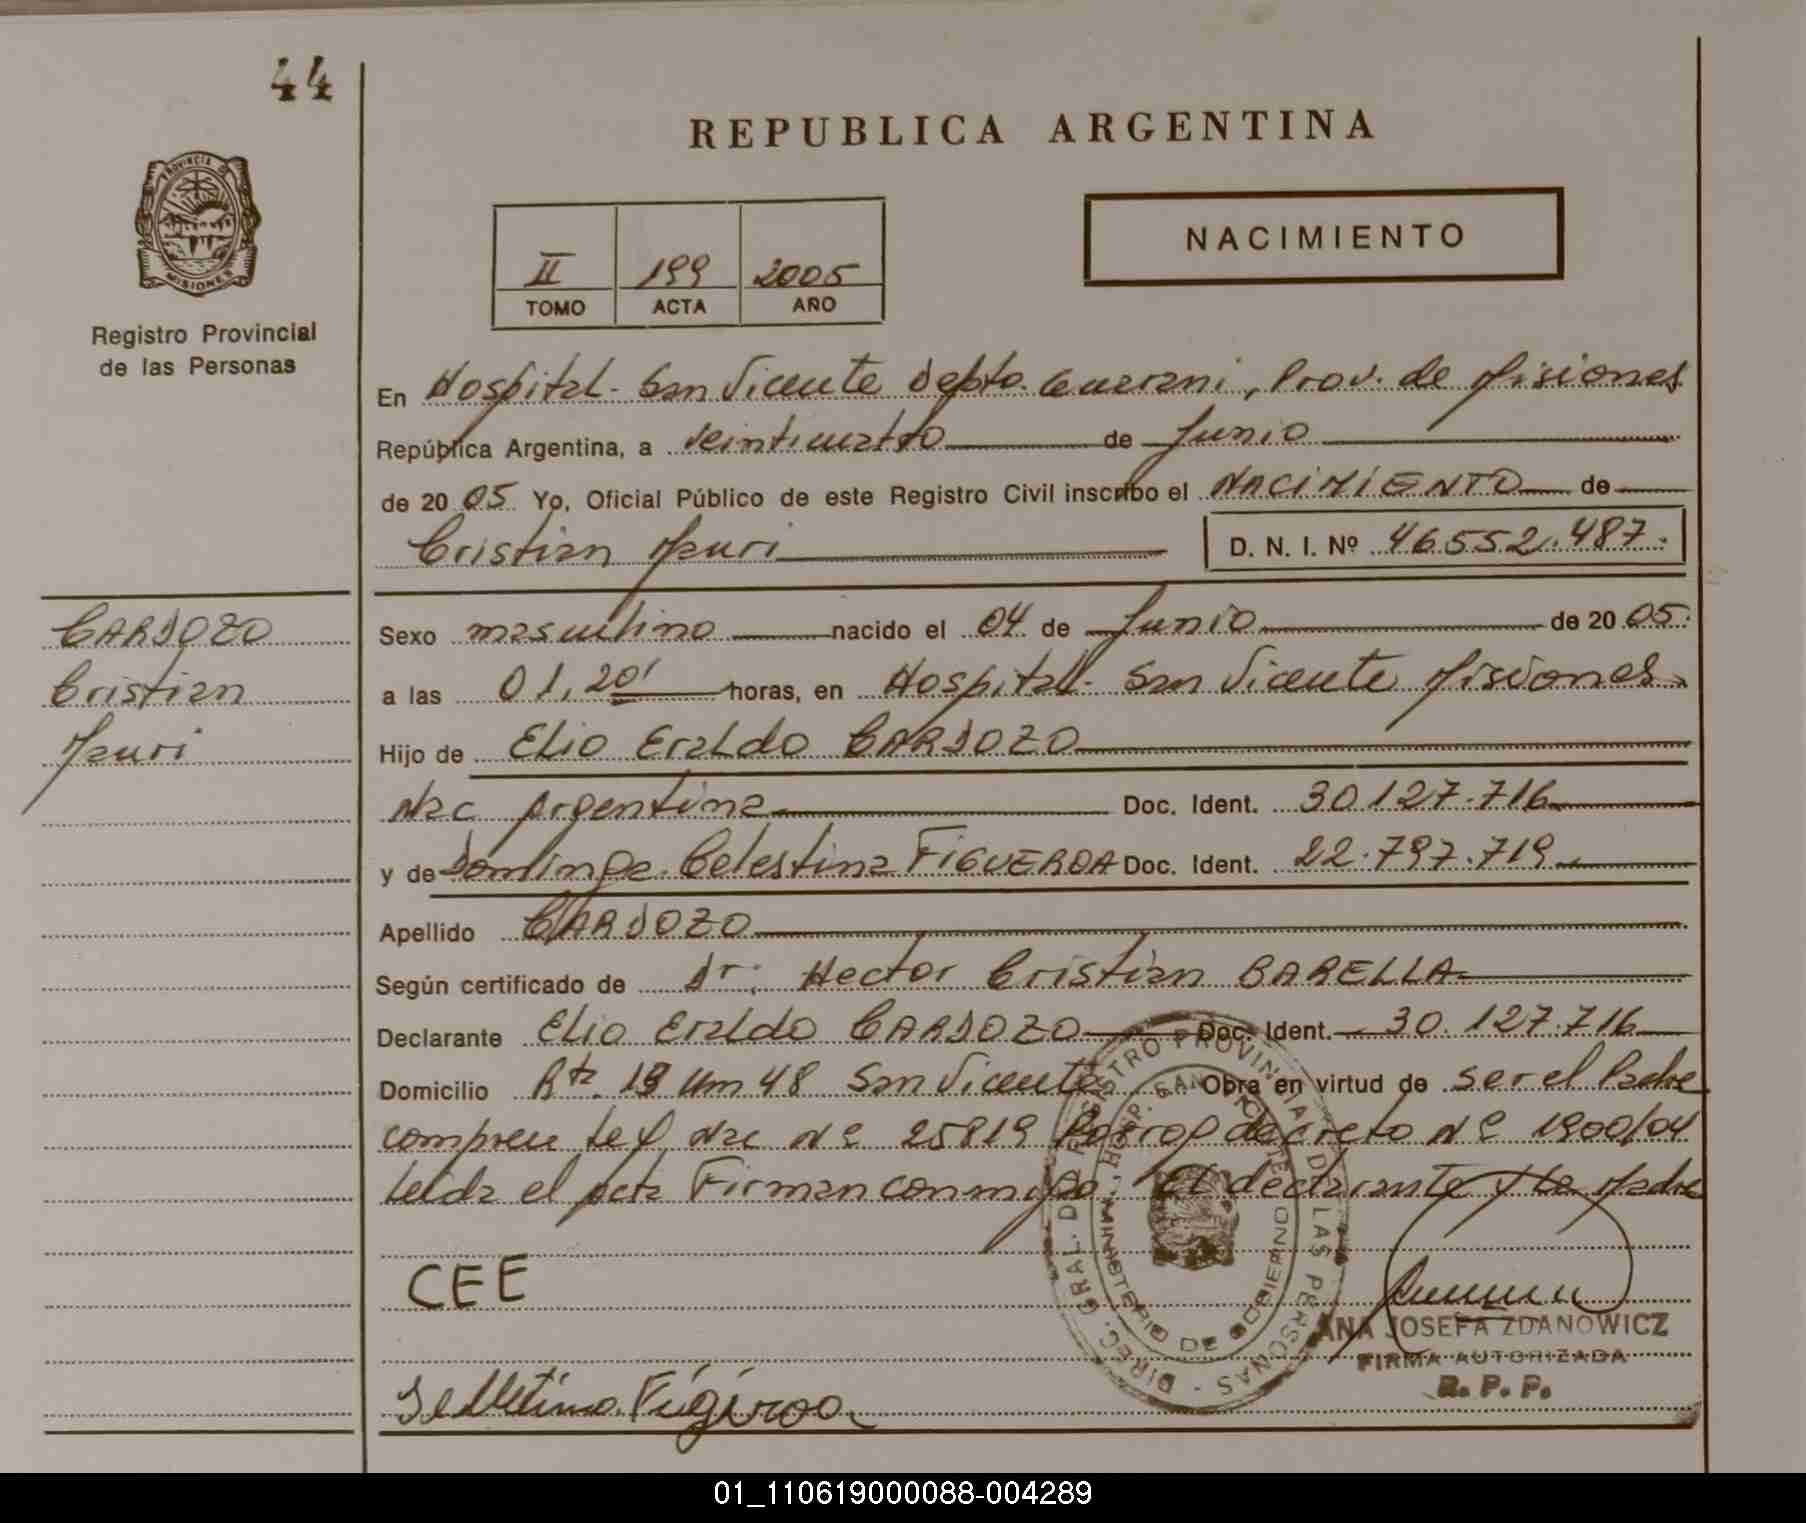 44
REPUBLICA ARGENTINA
PROVINCIA DE
MISIONES
Registro Provincial
de las Personas
II 199 2005
TOMO ACTA AÑO
NACIMIENTO
En Hospital - San Vicente Depto. Guarani, Prov. de Misiones
República Argentina, a veinticuatro de Junio
de 2005 Yo, Oficial Público de este Registro Civil inscribo el NACIMIENTO de
Cristian Mauri D. N. I. Nº 46552.487.
CARDOZO
Cristian
Mauri
Sexo masculino nacido el 04 de Junio de 2005.
a las 01,20' horas, en Hospital - San Vicente Misiones
Hijo de Elio Eraldo CARDOZO
Nac Argentina Doc. Ident. 30.127.716
y de Dominga Celestina FIGUEROA Doc. Ident. 22.797.719
Apellido CARDOZO
Según certificado de Dr. Hector Cristian BARELLA
Declarante Elio Eraldo CARDOZO Doc. Ident. 30.127.716
Domicilio Rta. 13 Km 48 San Vicente Obra en virtud de ser el Padre
Nac Nº 25819 decreto Nº 1900/04
leida el acta Firman conmigo: El declarante y la Madre
CEE
Figiroa
DIREC. GRAL. DE REGISTRO PROVINCIAL DE LAS PERSONAS
HOSP. SAN VICENTE
MINISTERIO DE GOBIERNO
ANA JOSEFA ZDANOWICZ
FIRMA AUTORIZADA
R. P. P.
01_110619000088-004289